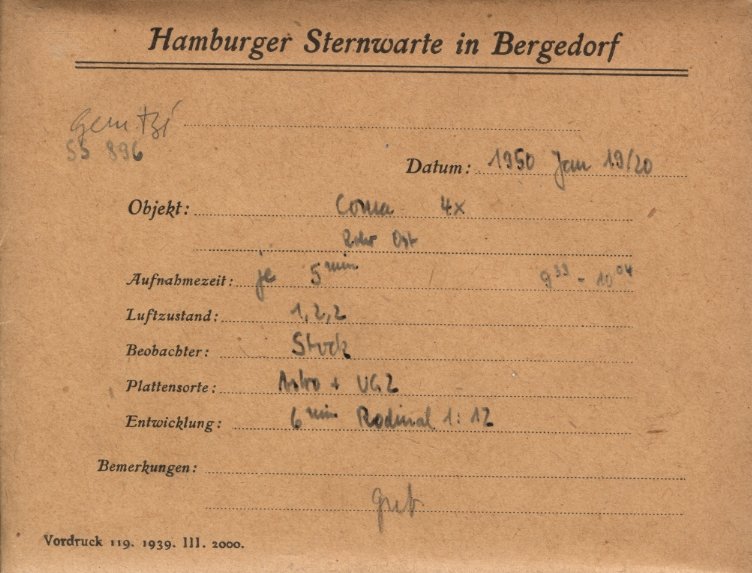 Hamburger Sternwarte in Bergedorf
SS 896
Datum: 1950 Jan 19/20
Objekt: Coma 4x
Rohr Ost
Aufnahmezeit: je 5 min 9 33 - 10 04
Luftzustand: 1, 2, 2
Beobachter: Stock
Plattensorte: Astro + UG2
Entwicklung: 6 min Rodinal 1:12
Bemerkungen:
gut
Vordruck 119. 1939. III. 2000.